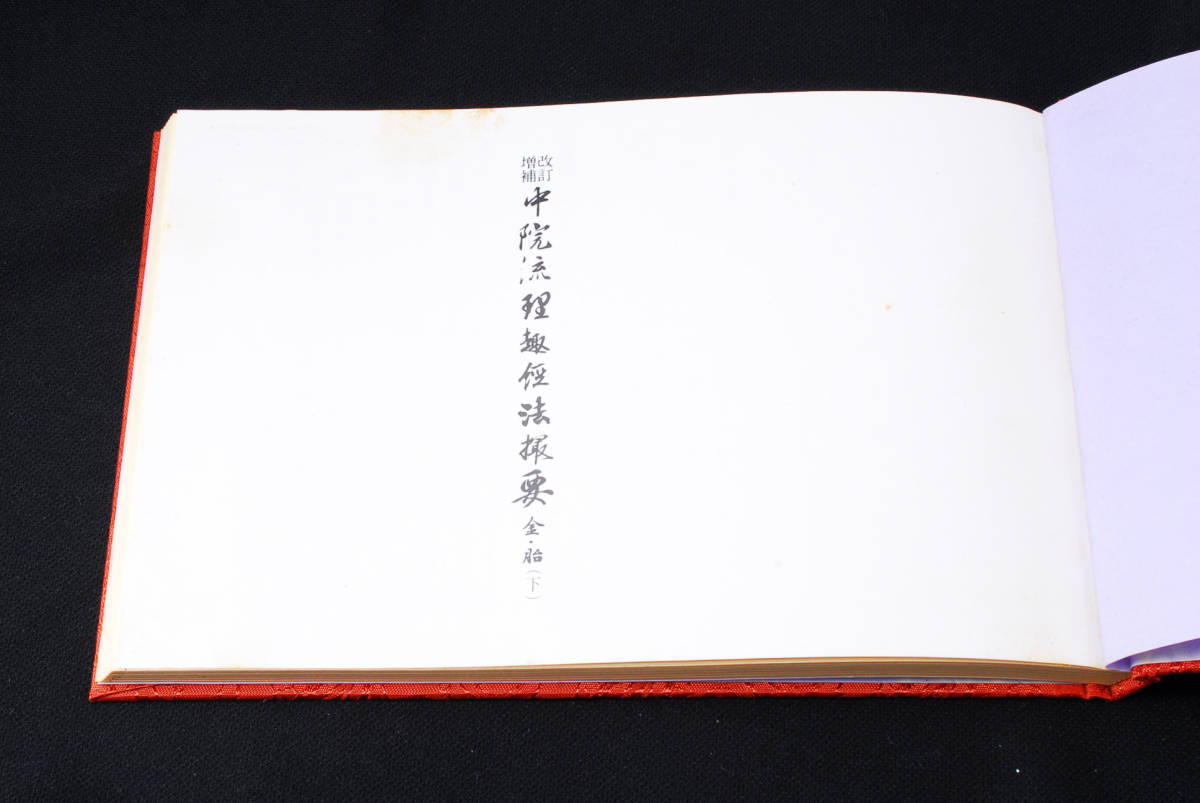 改訂
増補
中院流理趣経法撮要金・胎（下）